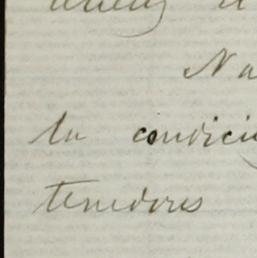 Na
la condici
tenedores